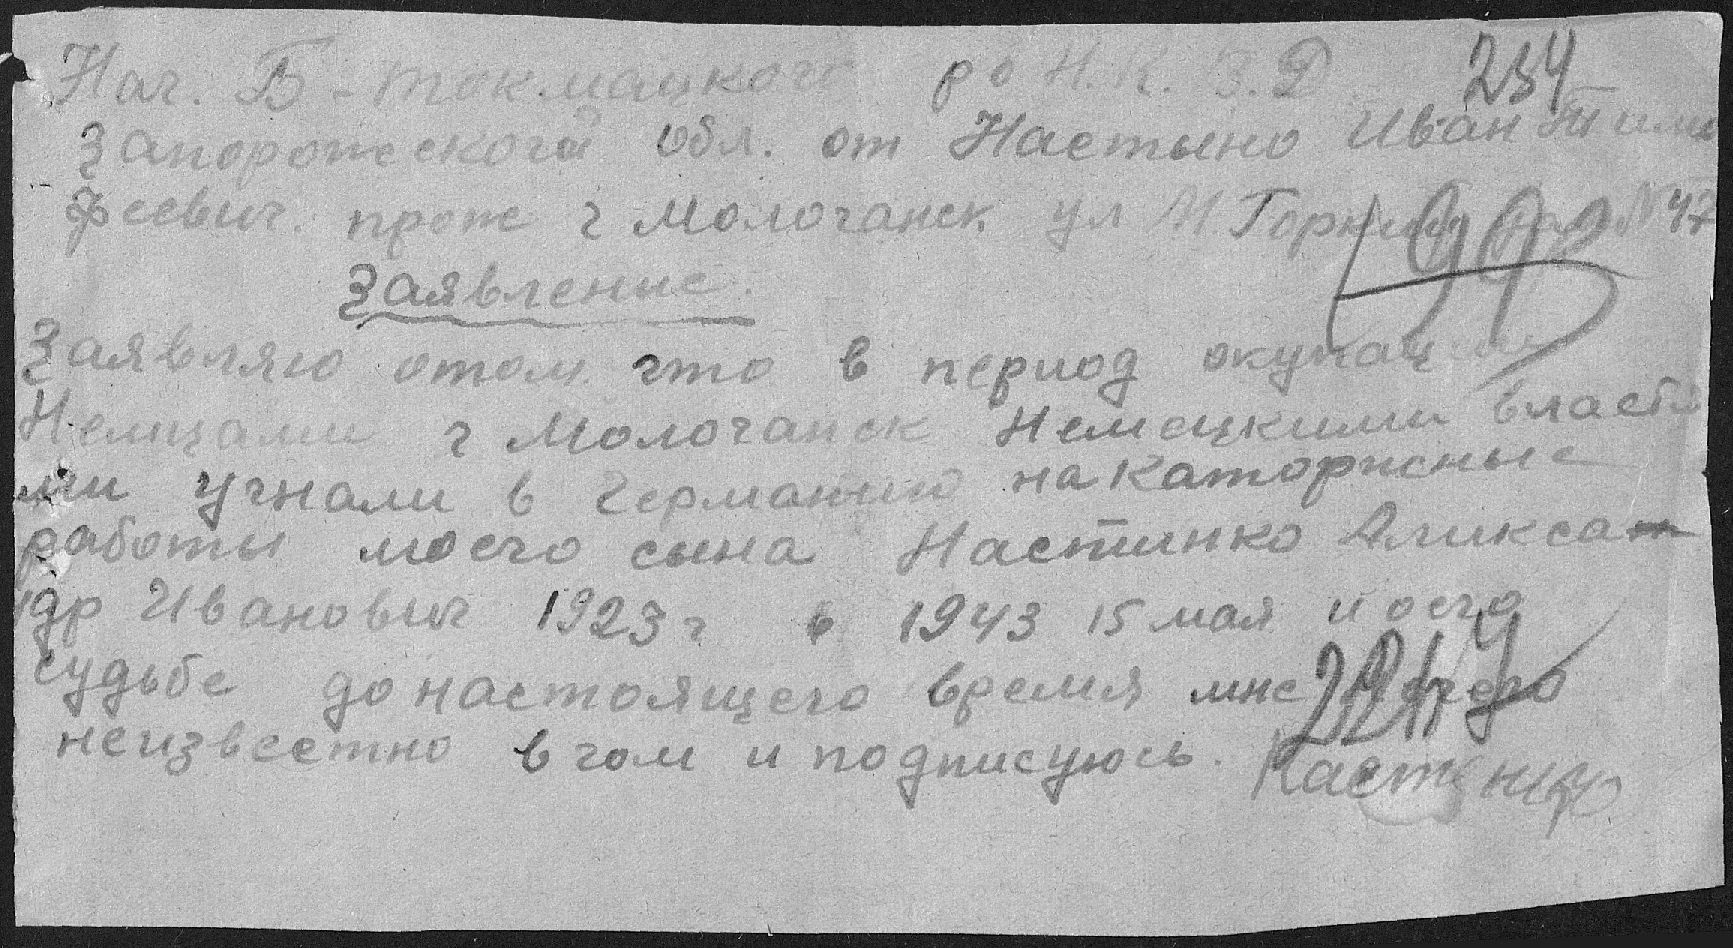 Нач. Б-токмацкого ро Н.К.В.Д 234
Запорожской обл. от Настыно Иван Тимо
феевич. прож г Молочанск ул М Горкого №47
Заявление.
Заявляю отом что в период окупации
Немцами г Молочанск Немецкими власт
ми угнали в Германию на каторжные
работы моего сына Настинко Аликсан
др Иванович 1923 г в 1943 15 мая и оего
судьбе до настоящего время мне
неизвестно в чом и подписуюсь.